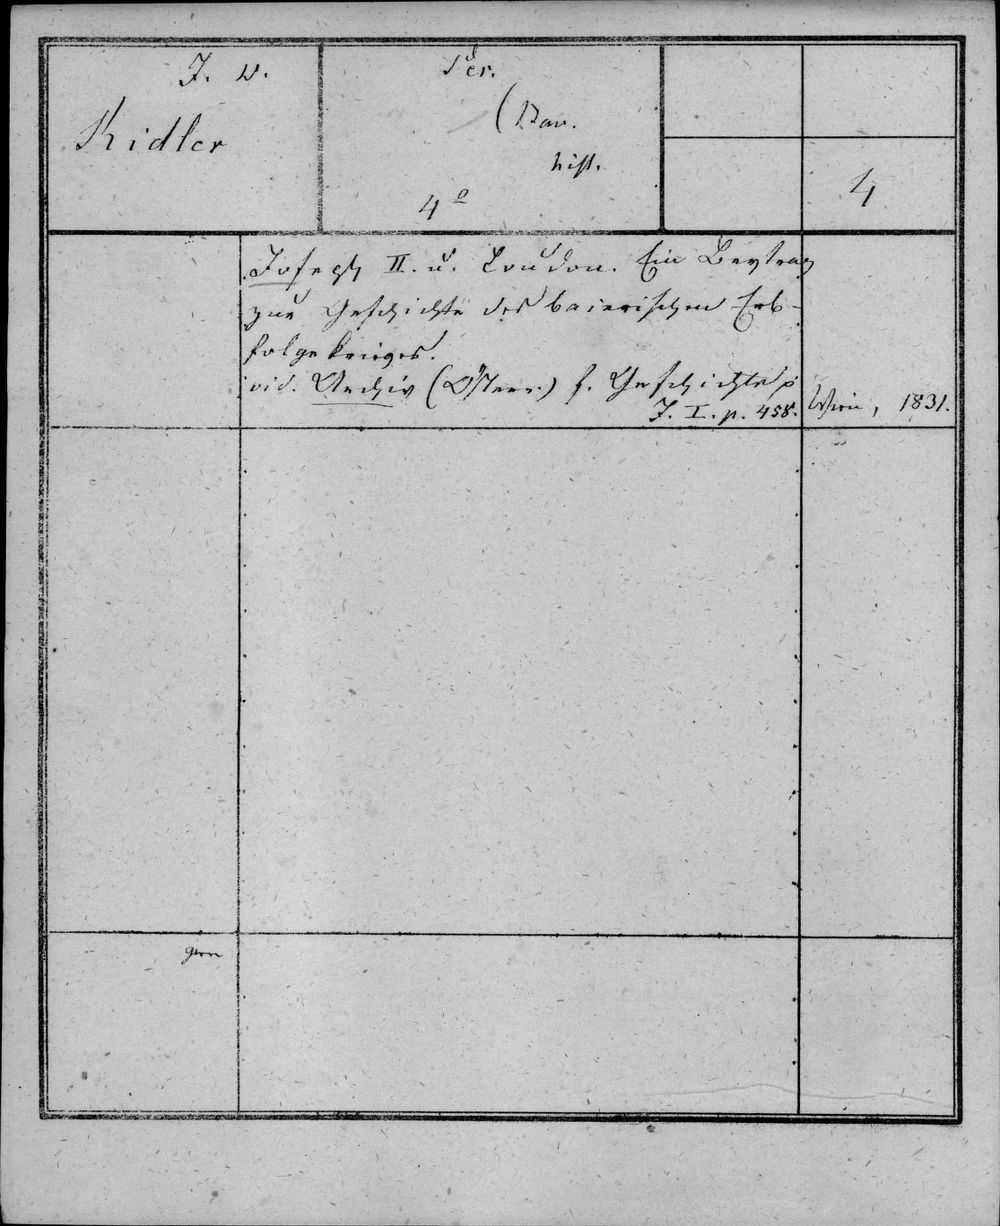 J. v.
Ridler
Per.
(Bav.
hist.
4º
4
Joseph II. u. Loudon. Ein Beytrag
zur Geschichte des baierischen Erb-
folgekrieges.
vid. Archiv (Österr.) f. Geschichte p
J. I. p. 458. Wien, 1831.